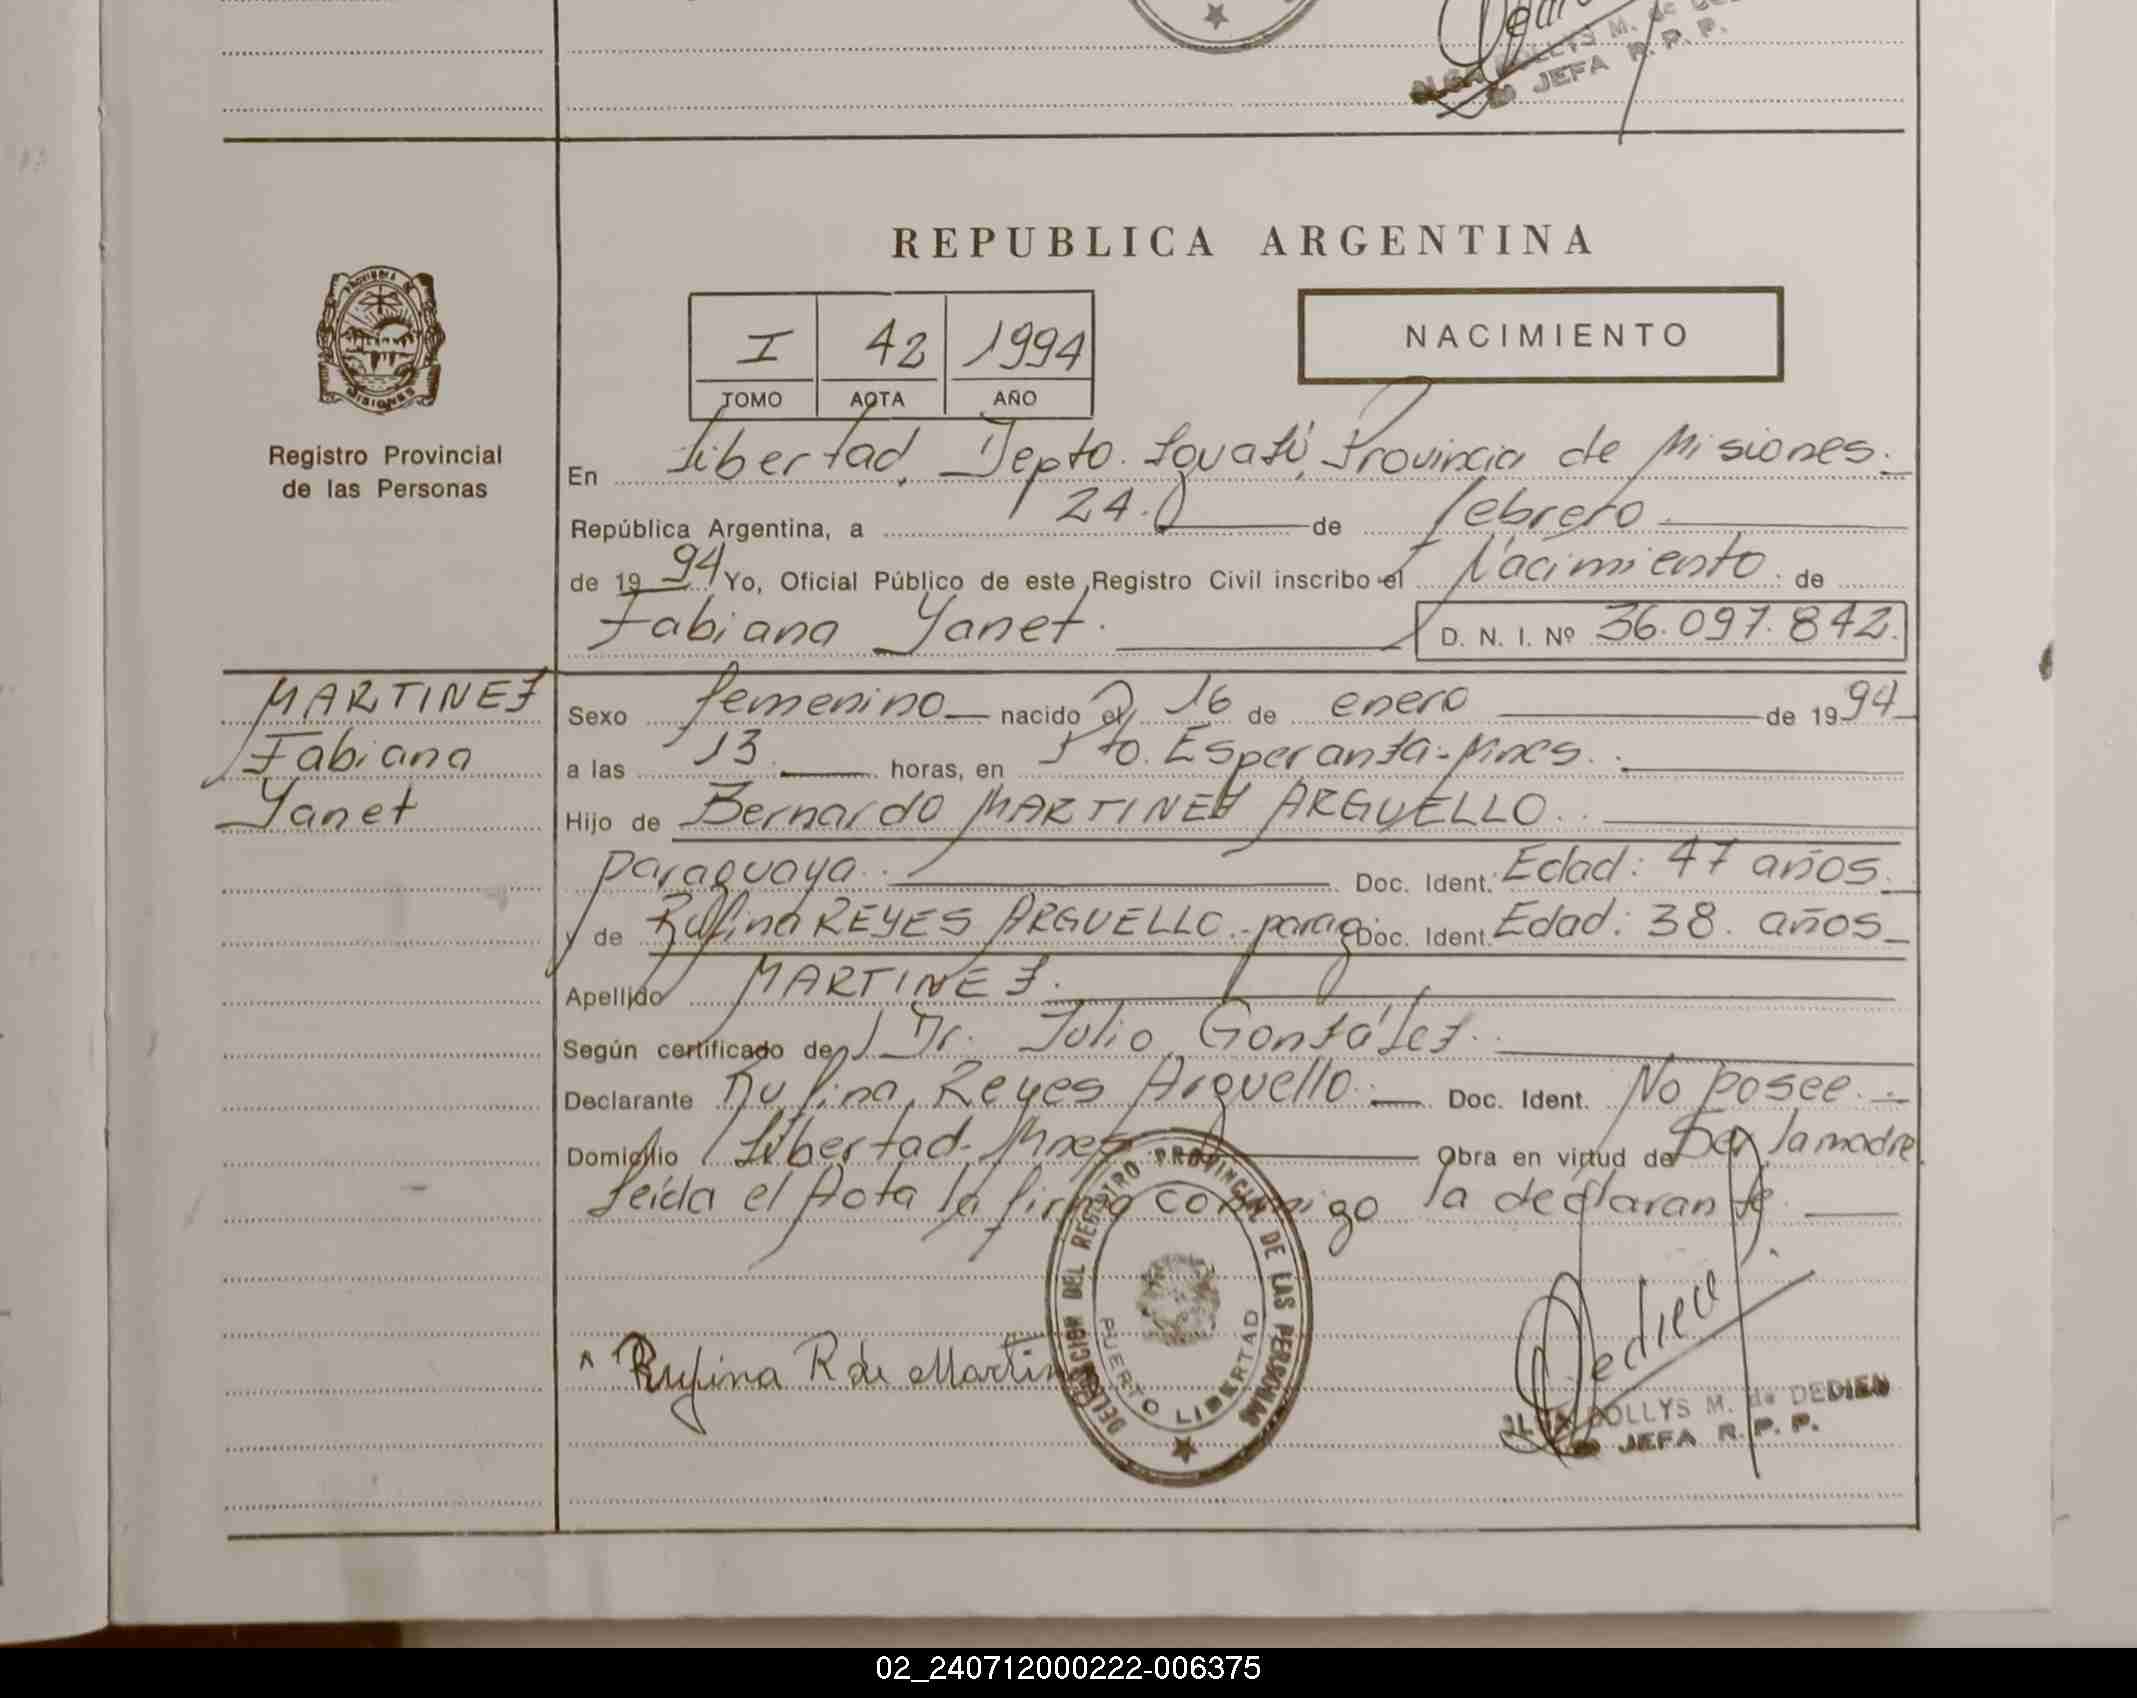 JEFA R. P. P.
REPUBLICA ARGENTINA
PROVINCIA DE
MISIONES
Registro Provincial
de las Personas
I 42 1994
TOMO ACTA AÑO
NACIMIENTO
En Libertad, Depto. Iguazú, Provincia de Misiones.
República Argentina, a 24. de febrero
de 1994 Yo, Oficial Público de este Registro Civil inscribo el Nacimiento de
Fabiana Yanet. D. N. I. Nº 36.097.842.
MARTINEZ
Fabiana
Yanet
Sexo femenino nacido el 16 de enero de 1994
a las 13 horas, en Pto. Esperanza-Mnes.
Hijo de Bernardo MARTINEZ ARGUELLO.
paraguaya. Doc. Ident. Edad: 47 años.
y de Rufina REYES ARGUELLO.-parag Doc. Ident. Edad: 38. años
Apellido MARTINEZ.
Según certificado de Dr. Julio González.
Declarante Rufina Reyes Arguello. Doc. Ident. No posee.
Domicilio Libertad-Mnes Obra en virtud de Ser la madre
Leída el Acta la firma conmigo la declarante.
DELEGACION DEL REGISTRO PROVINCIAL DE LAS PERSONAS
PUERTO LIBERTAD
Rufina R de Martin
Dedieu
DOLLYS M. de DEDIEU
JEFA R. P. P.
02_240712000222-006375